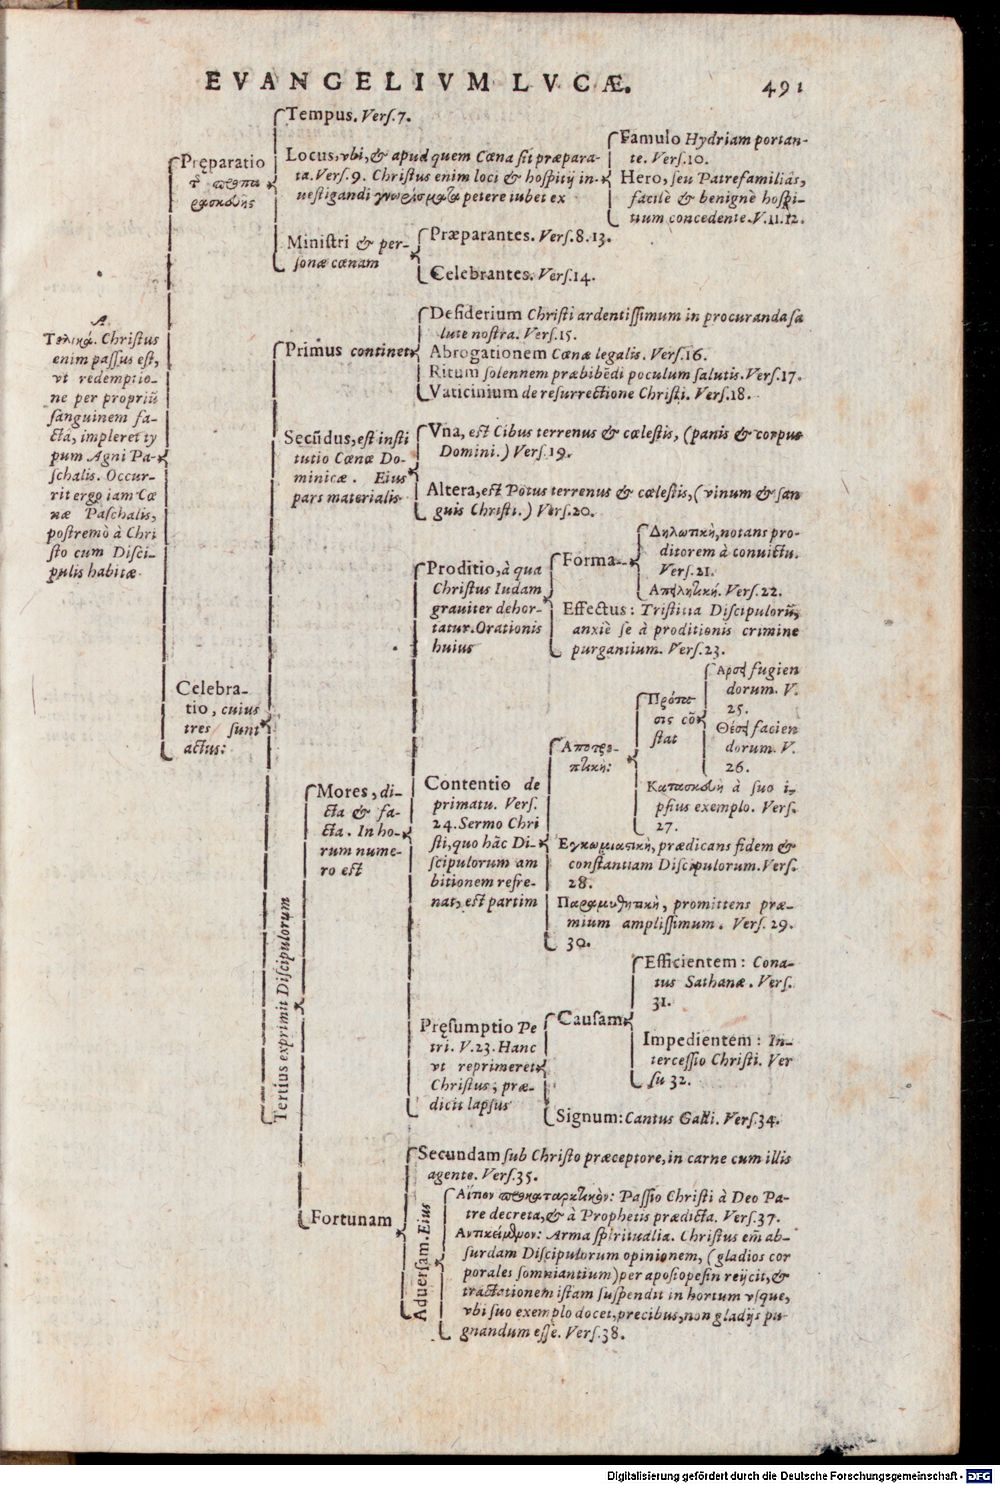 EVANGELIVM LVCÆ.
491
A
Τελικά. Christus
enim passus est,
vt redemptio-
ne per propriū
sanguinem fa-
cta, impleret ty
pum Agni Pa-
schalis. Occur-
rit ergo iam Cœ
næ Paschalis,
postremò à Chri
sto cum Disci-
pulis habitæ.
Pręparatio
τ̃ προπα
ρασκευῆς
Tempus. Vers. 7.
Locus, vbi, & apud quem Cœna sit præpara-
ta. Vers. 9. Christus enim loci & hospitij in-
uestigandi γνωρίσματα petere iubet ex
Famulo Hydriam portan-
te. Vers. 10.
Hero, seu Patrefamiliâs,
facilè & benignè hospi-
tium concedente. V. 11. 12.
Ministri & per-
sonæ cœnam
Præparantes. Vers. 8. 13.
Celebrantes. Vers. 14.
Celebra-
tio, cuius
tres sunt
actus:
Primus continet
Desiderium Christi ardentissimum in procuranda sa
lute nostra. Vers. 15.
Abrogationem Cœnæ legalis. Vers. 16.
Ritum solennem præbibēdi poculum salutis. Vers. 17.
Vaticinium de resurrectione Christi. Vers. 18.
Secūdus, est insti
tutio Cœnæ Do-
minicæ. Eius
pars materialis
Vna, est Cibus terrenus & cœlestis, (panis & corpus
Domini.) Vers. 19.
Altera, est Potus terrenus & cœlestis, (vinum & san
guis Christi.) Vers. 20.
Tertius exprimit Discipulorum
Mores, di-
cta & fa-
cta. In ho-
rum nume-
ro est
Proditio, à qua
Christus Iudam
grauiter dehor-
tatur. Orationis
huius
Forma
Δηλωτικὴ, notans pro-
ditorem à conuictu.
Vers. 21.
Απειλητικὴ. Vers. 22.
Effectus: Tristitia Discipulorū,
anxiè se à proditionis crimine
purgantium. Vers. 23.
Contentio de
primatu. Vers.
24. Sermo Chri
sti, quo hāc Di-
scipulorum am
bitionem refre-
nat, est partim
Αποτρε-
πτικὴ:
Πρότα-
σις cō
stat
Αρσει fugien
dorum. V.
25.
Θέσει facien
dorum. V.
26.
Κατασκευὴ à suo i-
psius exemplo. Vers.
27.
Εγκωμιαστικὴ, prædicans fidem &
constantiam Discipulorum. Vers.
28.
Παραμυθητικὴ, promittens præ-
mium amplissimum. Vers. 29.
30.
Pręsumptio Pe
tri. V. 23. Hanc
vt reprimeret
Christus, præ-
dicit lapsus
Causam
Efficientem: Cona-
tus Sathanæ. Vers.
31.
Impedientem: In-
tercessio Christi. Ver
su 32.
Signum: Cantus Galli. Vers. 34.
Fortunam
Secundam sub Christo præceptore, in carne cum illis
agente. Vers. 35.
Aduersam. Eius
Αἴτιον προκαταρκτικὸν: Passio Christi à Deo Pa-
tre decreta, & à Prophetis prædicta. Vers. 37.
Αντικείμενον: Arma spiritualia. Christus em̄ ab-
surdam Discipulorum opinionem, (gladios cor
porales somniantium) per aposiopesin reijcit, &
tractationem istam suspendit in hortum vsque,
vbi suo exemplo docet, precibus, non gladijs pu-
gnandum esse. Vers. 38.
Digitalisierung gefördert durch die Deutsche Forschungsgemeinschaft - DFG